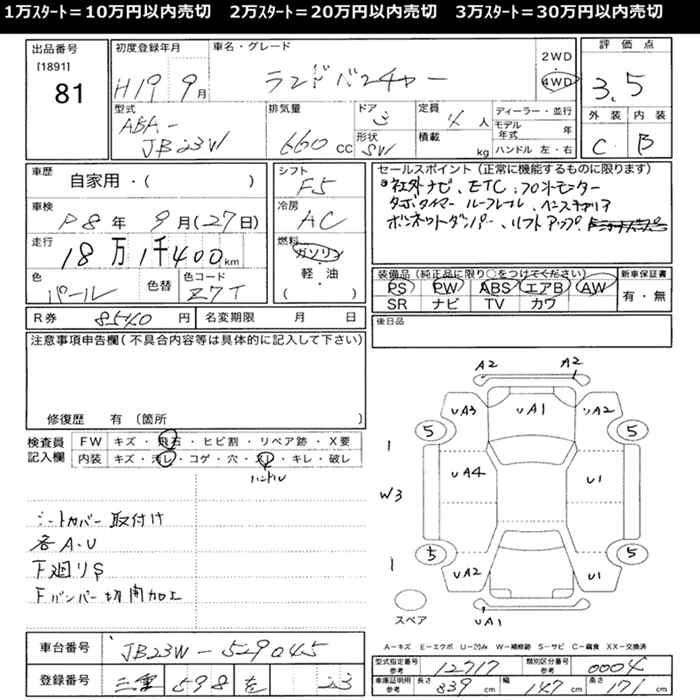 1万ｽﾀｰﾄ＝10万円以内売切　2万ｽﾀｰﾄ＝20万円以内売切　3万ｽﾀｰﾄ＝30万円以内売切
出品番号
[1891]
81
初度登録年月
H19 9月
車名・グレード
ランドベンチャー
2WD
4WD
評価点
3.5
型式
ABA-
JB23W
排気量
660 cc
ドア
3
形状
SW
定員
4人
積載
kg
ディーラー・並行
モデル年式 年
ハンドル 左・右
外装 内装
C B
車歴
自家用・( )
車検
R8年 9月(27日)
走行
18万1千400km
色
パール
色替
色コード
Z7T
シフト
F5
冷房
AC
燃料
ガソリン
軽・油
( )
セールスポイント（正常に機能するものに限ります）
社外ナビ、ETC、フロントモニター
ターボタイマー ルーフレール、
ボンネットダンパー、リフトアップ
装備品（純正品に限り○をつけてください）
PS PW ABS エアB AW
SR ナビ TV カワ
新車保証書
有・無
R券 8540円
名変期限 月 日
後日品
注意事項申告欄（不具合内容等は具体的に記入して下さい）
修復歴 有 〔箇所 〕
検査員記入欄
FW キズ・飛石・ヒビ割・リペア跡・X要
内装 キズ・汚レ・コゲ・穴・スレ・キレ・破レ
ハンドル
シートカバー取付け
各A・U
下廻りS
Fバンパー切開加工
A2 A2
UA3 UA1 UA2
5 5
1
UA4 U1
W3
5 5
1
UA2 U1
スペア
UA1
A－キズ E－エクボ U－凹み W－補修跡 S－サビ C－腐食 XX－交換済
車台番号 JB23W-529045
登録番号 三重 598 を 23
型式指定番号 参考 12717
類別区分番号 参考 0004
車庫証明用 参考 長さ 339cm 幅 147cm 高さ 171cm